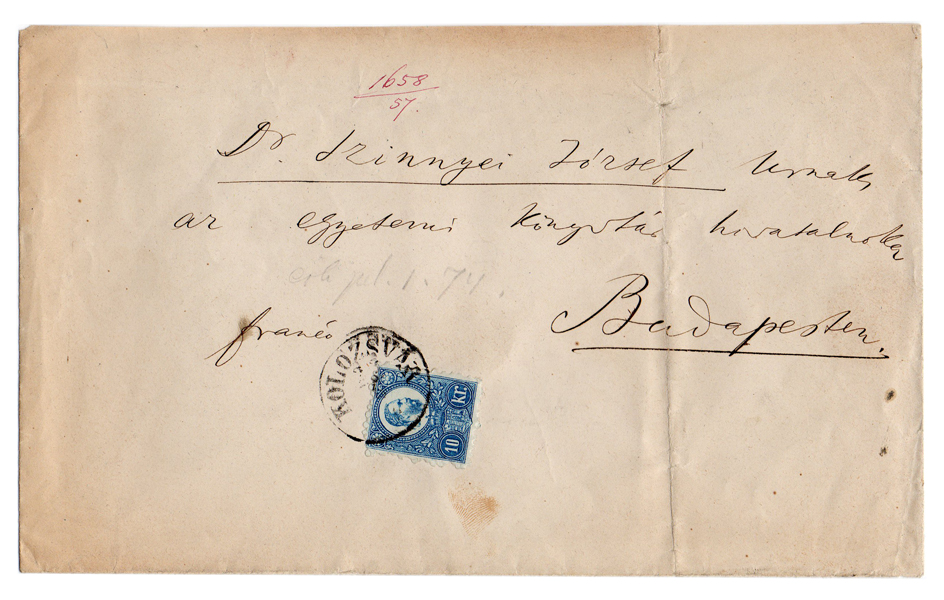 1658
57.
Dr. Szinnyei József Urnak
az egyetemi könyvtár hivatalnoka
jul. 1. 74.
Budapesten.
franco
KOLOZSVÁR
10 kr.